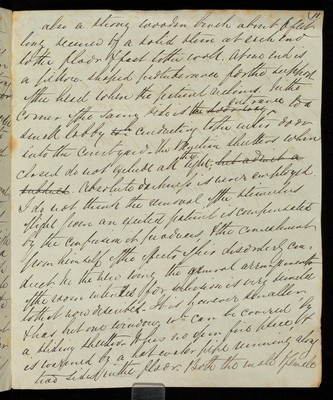 also a strong wooden bench about 6 feet
long secured by a solid stem at each end
to the floor & fast to the wall. At one end is
a pillow shaped protuberance for the support
of the head when the patient reclines. In the
corner of the same side is the entrance to a
small lobby conducting to the outer door
into the courtyard. The shutters when
closed do not exclude all the light, but admit a
Absolute darkness is never employed.
I do not think the removal of the stimulus
of light from an excited patient is compensated
by the confusion it produces & the concealment
from himself of the effects of his disorderly con
duct. In the new wing the general arrangements
of the room intended for seclusion is very similar
to that now described. It is however smaller
& has but one window wh. can be covered by
a sliding shutter. It has no open fire place, but
is warmed by a hot water pipe running along
two sides in the floor. Both the male & female